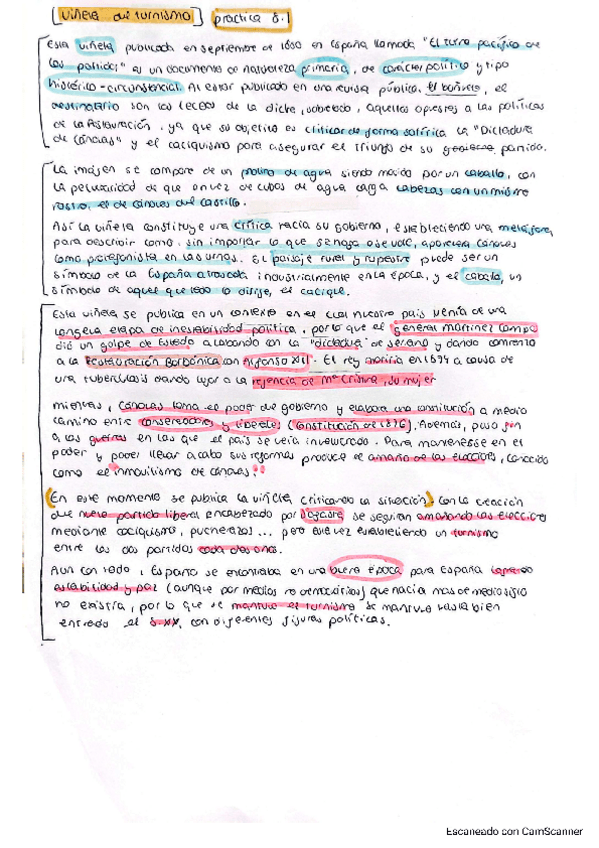 Viñeta del turnismo práctica 8.1
Esta viñeta publicada en septiembre de 1880 en España llamada "El turno pacífico de
los partidos" es un documento de naturaleza primaria, de carácter político y tipo
histórico-circunstancial. Al estar publicado en una revista pública, el
destinatario son los de la dicha, sobretodo, aquellos a las políticas
de la Restauración, ya que su objetivo es criticar de forma satírica la "Dictadura
de Cánovas" y el caciquismo para asegurar el triunfo de su partido.
La imajen se compone de un molino de agua siendo movido por un caballo, con
la peculiaridad de que en vez de cubos de agua carga cabezas con un mismo
rostro, el de Cánovas del Castillo.
Así la viñeta constituye una crítica hacia su gobierno, estableciendo una metáfora,
para describir como, sin importar lo que se haga o se vote, aparecerá Cánovas
como protagonista en las urnas. El paisaje rural y rupestre puede ser un
símbolo de la España atrasada industrialmente en la época, y el caballo, un
símbolo de aquel que todo lo dirije, el cacique.
Esta viñeta se publica en un contexto en el cual nuestro país venía de una
longeva etapa de inestabilidad política, por lo que el general Martínez Campos
dió un golpe de Estado acabando con la "dictadura" de Serrano y dando comienzo
a la Restauración Borbónica con Alfonso XII. El rey moriría en a causa de
una tuberculosis dando lugar a la rejencia de Mª Cristina, su mujer.
Mientras, Cánovas toma el poder del gobierno y elabora una constitución a medio
camino entre conservadores y liberales (Constitución de 1876). Además, puso fin
a las guerras en las que el país se veía involucrado. Para mantenerse en el
poder y poder llevar a cabo sus reformas produce el amaño de las elecciones, conocido
como el inmovilismo de Cánovas.
(En este momento se publica la viñeta, criticando la situación). Con la creación
del nuevo partido liberal encabezado por Sagasta se seguían amañando las elecciones
mediante caciquismo, pucherazos... pero esta vez estableciendo un turnismo
entre los dos partidos cada dos años.
Aun con todo, España se encontraba en una buena época para España
estabilidad y paz (aunque por medios no democráticos) que hacía mas de medio siglo
no existía, por lo que se mantuvo el turnismo se mantuvo hasta bien
entrado el S.XX, con diferentes figuras políticas.
Escaneado con CamScanner